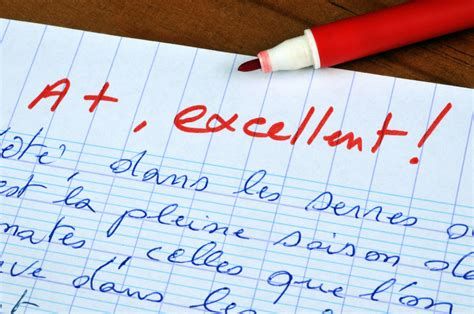 A+, excellent!
été, dans les serres
est la pleine saison de
mates, celles que l'on
dans les